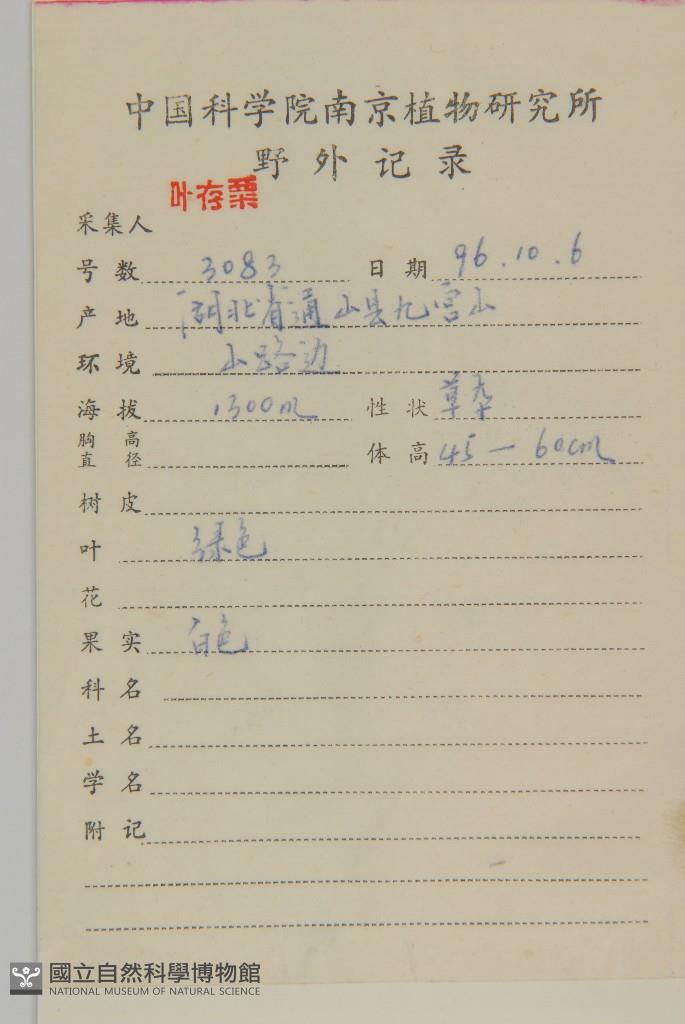 中国科学院南京植物研究所
野外记录
叶存粟
采集人
号数 3083 日期 96.10.6
产地 湖北省通山县九宫山
环境 山路边
海拔 1300m 性状 草本
胸高直径 体高 45-60cm
树皮
叶 绿色
花
果实 白色
科名
土名
学名
附记
國立自然科學博物館
NATIONAL MUSEUM OF NATURAL SCIENCE